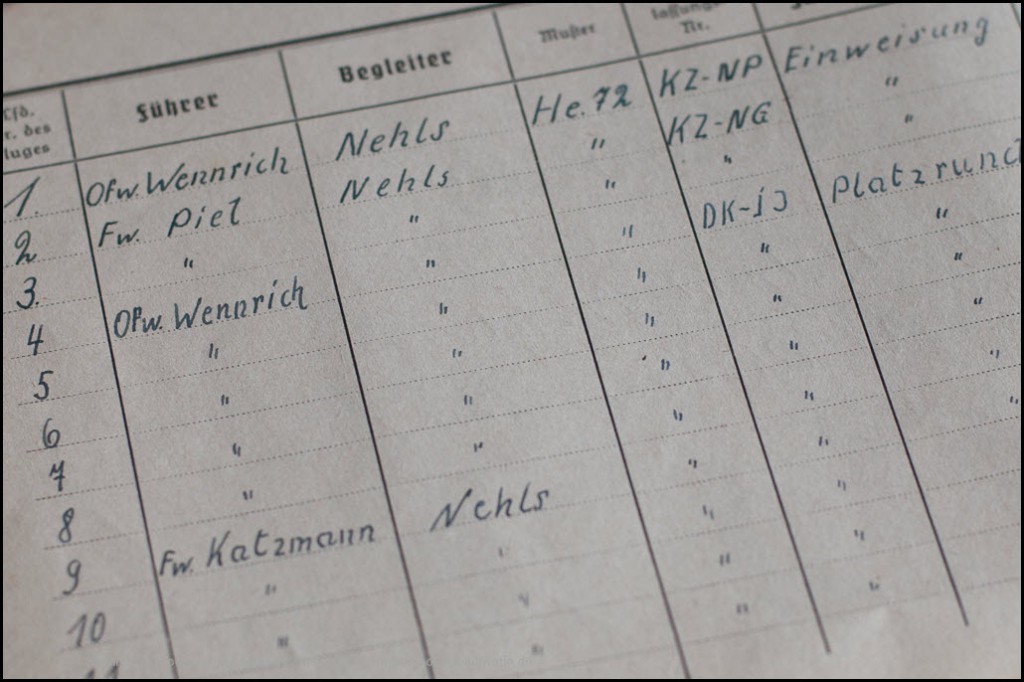 Lfd.
r. des
luges
Führer
Begleiter
Muster
lassungs
Nr.
1. Ofw. Wennrich Nehls He.72 KZ-NP Einweisung
2 Fw. Piel Nehls " KZ-NG "
3. " " " " "
4 Ofw. Wennrich " " DK-jJ Platzrund
5 " " " " "
6 " " " " "
7 " " " " "
8 " " " " "
9 Fw. Katzmann Nehls " " "
10 " " " "
11 " " " "